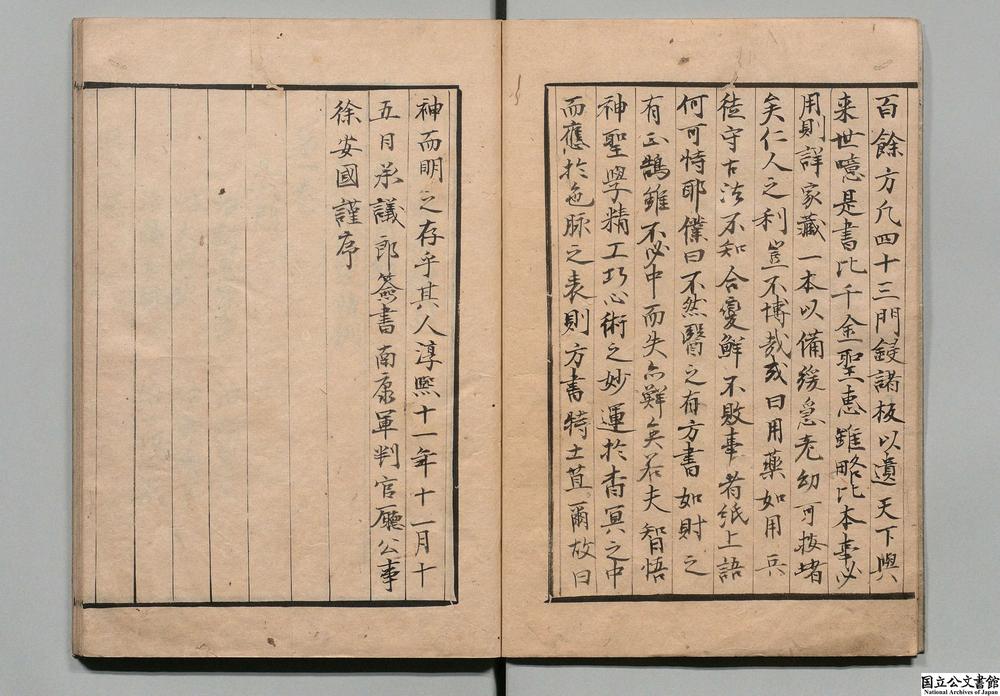 百餘方凡四十三門鋟諸板以遺天下與
来世噫是書比千金聖惠雖略比本事必
用則詳家藏一本以備緩急老幼可按堵
矣仁人之利豈不博哉或曰用藥如用兵
徒守古法不知合變鮮不敗事者紙上語
何可恃耶僕曰不然醫之有方書如財之
有正鵠雖不必中而失亦鮮矣若夫智悟
神聖學精工巧心術之妙運於杳冥之中
而應於色脉之表則方書特土苴爾故曰
神而明之存乎其人淳熙十一年十一月十
五日承議郎簽書南康軍判官廳公事
徐安國謹序
国立公文書館
National Archives of Japan